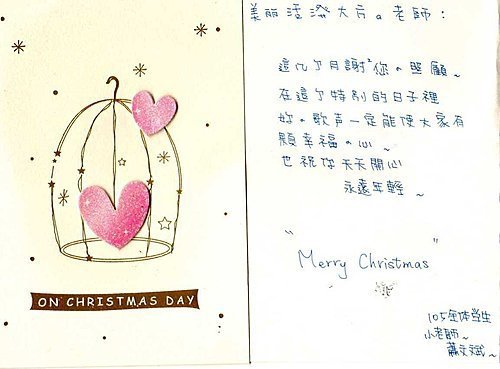 ON CHRISTMAS DAY
美麗活潑大方。老師:
這几個月謝謝你。照顧~
在這個特別的日子裡
妳。歌声一定能使大家有
顆幸福。心~
也祝你天天開心
永遠年輕~
"Merry Christmas"
105全体学生
小老師~
蕭文斌~